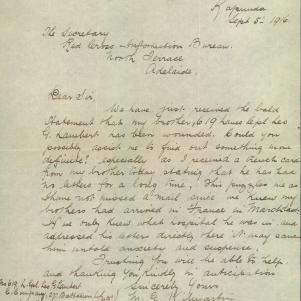 Kapunda
Sept 5. 1916
The Secretary
Red Cross Information Bureau.
North Terrace
Adelaide.
Dear Sir,
We have just received the bald
statement that my brother, 619 Lance Cpl Leo
G. Lambert has been wounded. Could you
possibly assist me to find out something more
definite? especially as I received a trench card
from my brother today stating that he has had
no letters for a long time, This puzzles me as
have not missed a mail since we knew my
brothers had arrived in France in March
If we only knew what hospital he was in and
addressed his letters directly there it may save
him untold anxiety and suspense.
Trusting you will be able to help
and thanking you kindly in anticipation
Sincerely Yours
M. E.
No 619 L. Cpl. Leo G Lambert
C Company, 27 Battalion